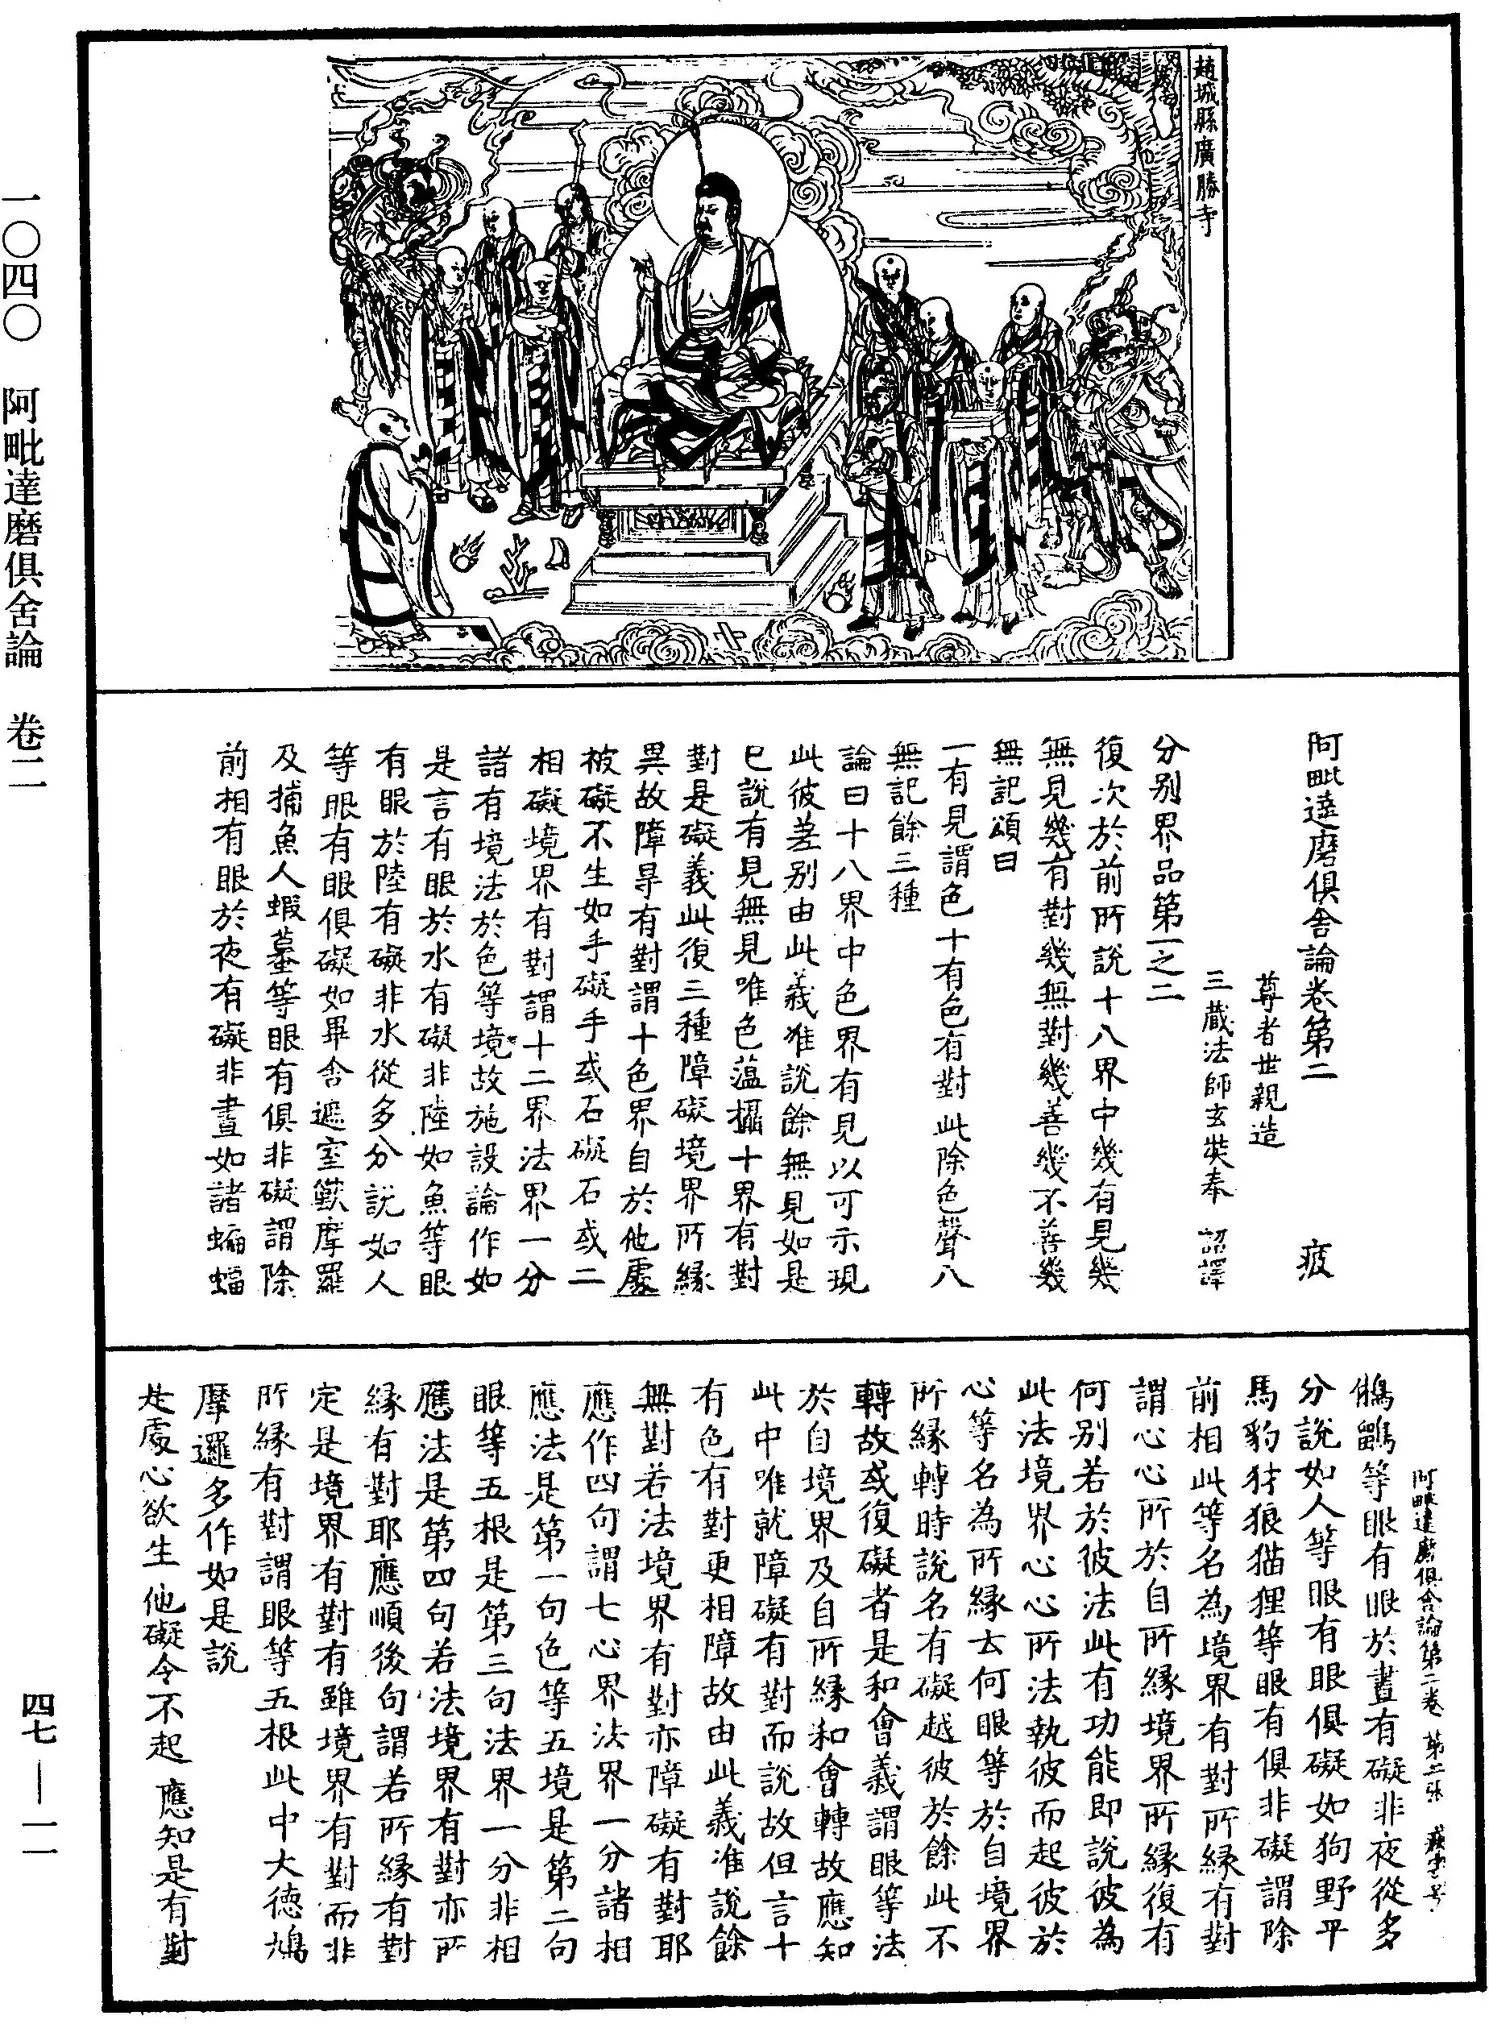 趙城縣廣勝寺
一〇四〇 阿毗達磨俱舍論 卷二
阿毗達磨俱舍論卷第二 疲
尊者世親造
三藏法師玄奘奉 詔譯
分别界品第一之二
復次於前所說十八界中幾有見幾
無見幾有對幾無對幾善幾不善幾
無記頌曰
一有見謂色十有色有對此除色聲八
無記餘三種
論曰十八界中色界有見以可示現
此彼差别由此義准說餘無見如是
已說有見無見唯色蘊攝十界有對
對是礙義此復三種障礙境界所緣
異故障导有對謂十色界自於他處
被礙不生如手礙手或石礙石或二
相礙境界有對謂十二界法界一分
諸有境法於色等境故施設論作如
是言有眼於水有礙非陸如魚等眼
有眼於陸有礙非水從多分說如人
等眼有眼俱礙如畢舍遮室獸摩羅
及捕魚人蝦蟇等眼有俱非礙謂除
前相有眼於夜有礙非晝如諸蝙蝠
阿毗達磨俱舍論第二卷 第二張
鵂鶹等眼有眼於晝有礙非夜從多
分說如人等眼有眼俱礙如狗野干
馬豹犲狼猫狸等眼有俱非礙謂除
前相此等名為境界有對所緣有對
謂心心所於自所緣境界所緣復有
何别若於彼法此有功能即說彼為
此法境界心心所法執彼而起彼於
心等名為所緣云何眼等於自境界
所緣轉時說名有礙越彼於餘此不
轉故或復礙者是和會義謂眼等法
於自境界及自所緣和會轉故應知
此中唯就障礙有對而說故但言十
有色有對更相障故由此義准說餘
無對若法境界有對亦障礙有對耶
應作四句謂七心界法界一分諸相
應法是第一句色等五境是第二句
眼等五根是第三句法界一分非相
應法是第四句若法境界有對亦所
緣有對耶應順後句謂若所緣有對
定是境界有對有雖境界有對而非
所緣有對謂眼等五根此中大德鳩
摩邏多作如是說
是處心欲生 他礙令不起 應知是有對
四七—一一